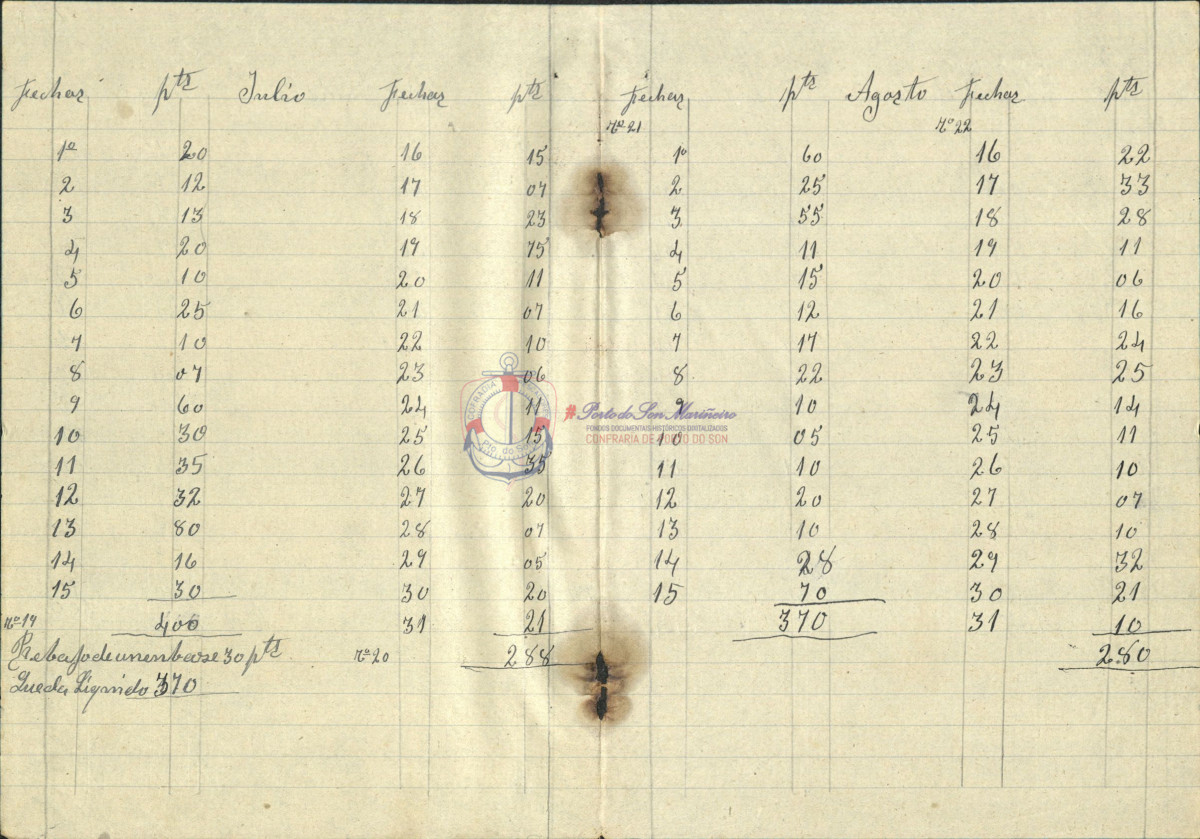 Fechas pts Julio Fechas pts Fechas pts Agosto Fechas pts
nº 21 nº 22
1º 20 16 15 1º 60 16 22
2 12 17 07 2 25 17 33
3 13 18 23 3 55 18 28
4 20 19 75 4 11 19 11
5 10 20 11 5 15 20 06
6 25 21 07 6 12 21 16
7 10 22 10 7 17 22 24
8 07 23 06 8 22 23 25
9 60 24 11 9 10 24 14
10 30 25 15 10 05 25 11
11 35 26 35 11 10 26 10
12 32 27 20 12 20 27 07
13 80 28 07 13 10 28 10
14 16 29 05 14 28 29 32
15 30 30 20 15 70 30 21
nº 19 400 31 21 370 31 10
Rebajo de un enbase 30 pts nº 20 288 280
Queda Liquido 370
COFRADIA
Pto. do Son
#Porto do Son Mariñeiro
FONDOS DOCUMENTAIS HISTÓRICOS DIXITALIZADOS
CONFRARIA DE PORTO DO SON